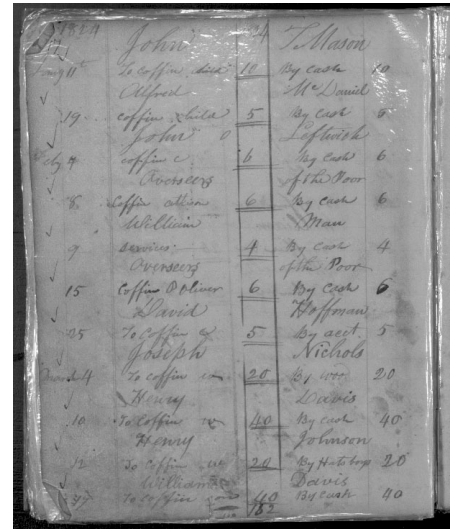 1829
John 24 T. Mason
11 To coffin child 10 By cash 10
Alfred McDaniel
19 coffin child 5 By cash 5
John Leftwich
4 coffin 6 By cash 6
Overseers of the Poor
8 Coffin 6 By Cash 6
William Man
9 services 4 By Cash 4
Overseers of the Poor
15 Coffin P Oliver 6 By Cash 6
David Hoffman
25 To coffin 5 By acct. 5
Joseph Nichols
4 To coffin 20 By 20
Henry Davis
10 To coffin 40 By cash 40
Henry Johnson
12 To coffin 20 By 20
William Davis
To coffin 40 By cash 40
182